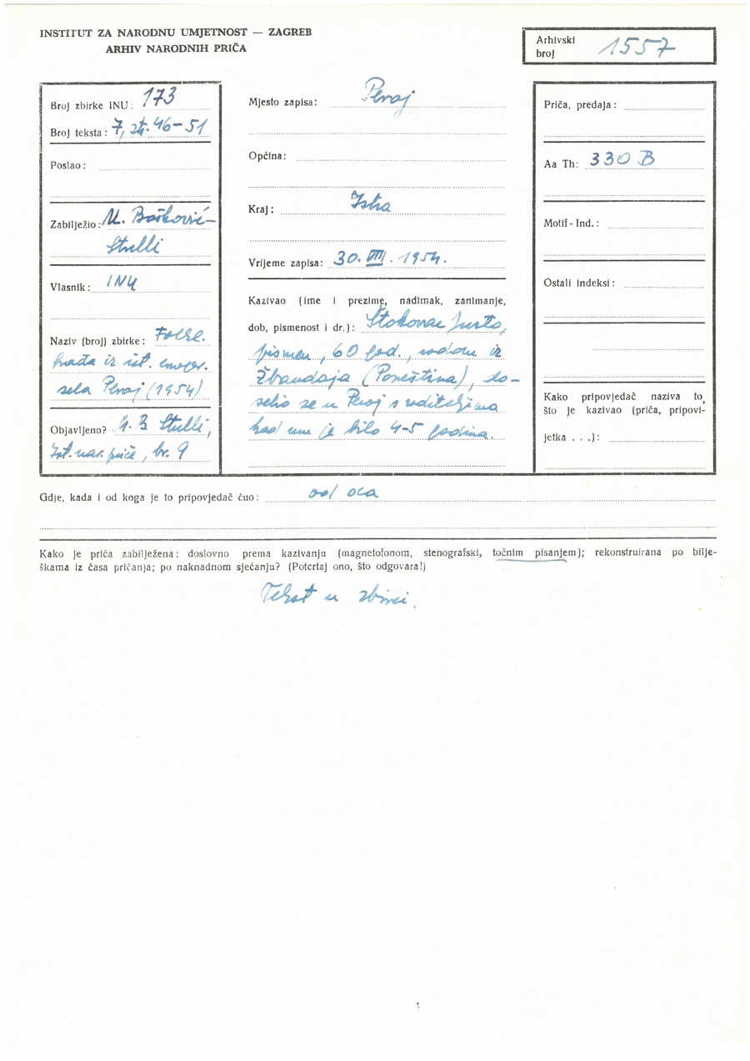 INSTITUT ZA NARODNU UMJETNOST — ZAGREB
ARHIV NARODNIH PRIČA
Arhivski broj 1557
Broj zbirke INU: 173
Broj teksta: 7, str. 46-51
Poslao:
Zabilježio: M. Bošković-
Stulli
Vlasnik: INU
Naziv (broj) zbirke: Folkl.
građa iz ist.
sela Peroj (1954)
Objavljeno? Stulli,
Ist. nar. priče, br. 9
Mjesto zapisa: Peroj
Općina:
Kraj: Istra
Vrijeme zapisa: 30. VIII. 1954.
Kazivao (ime i prezime, nadimak, zanimanje,
dob, pismenost i dr.): Štokovac Justo,
pismen, 60 god., rodom iz
Žbandaja (Poreština), do-
selio se u Peroj s roditeljima
kad mu je bilo 4-5 godina.
Priča, predaja:
Aa Th: 330 B
Motif - Ind.:
Ostali indeksi:
Kako pripovjedač naziva to,
što je kazivao (priča, pripovi-
jetka . . .):
Gdje, kada i od koga je to pripovjedač čuo: od oca
Kako je priča zabilježena: doslovno prema kazivanju (magnetofonom, stenografski, točnim pisanjem); rekonstruirana po bilje-
škama iz časa pričanja; po naknadnom sjećanju? (Potcrtaj ono, što odgovara!)
Tekst u zbirci.